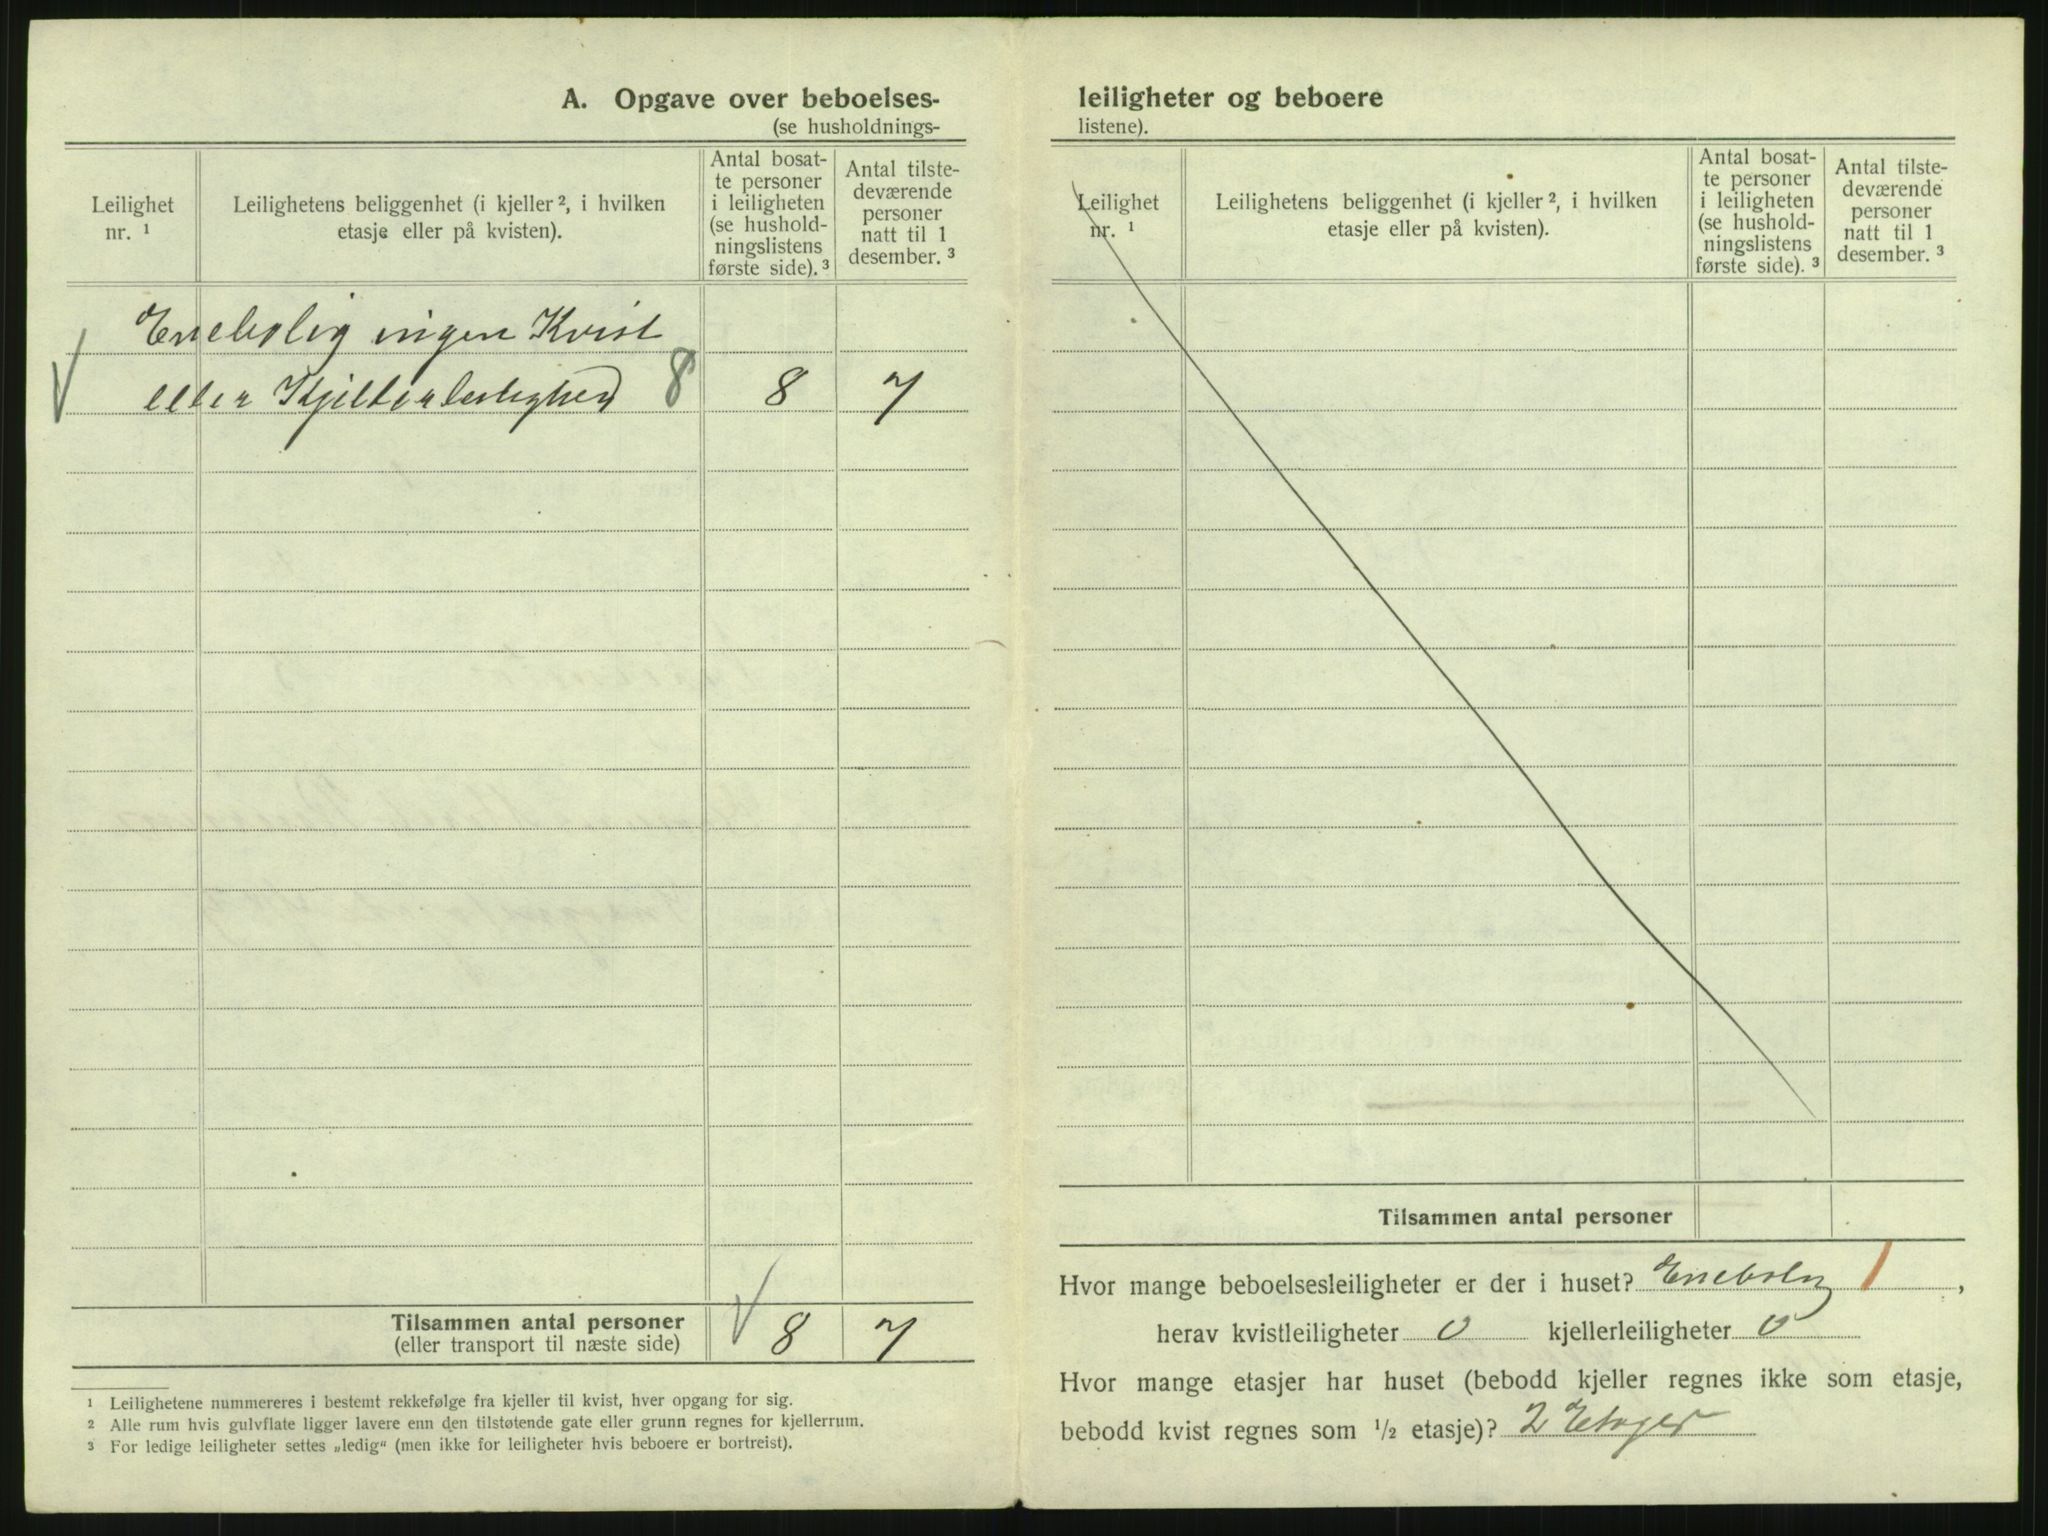 A. Opgave over beboelses-
(se husholdnings-
Leilighet
nr. ¹
Leilighetens beliggenhet (i kjeller ², i hvilken
etasje eller på kvisten).
Antal bosat-
te personer
i leiligheten
(se hushold-
ningslistens
første side). ³
Antal tilste-
deværende
personer
natt til 1
desember. ³
Enebolig ingen Kvist
eller Kjelderleilighed 8 8 7
Tilsammen antal personer
(eller transport til næste side)
8 7
¹ Leilighetene nummereres i bestemt rekkefølge fra kjeller til kvist, hver opgang for sig.
² Alle rum hvis gulvflate ligger lavere enn den tilstøtende gate eller grunn regnes for kjellerrum.
³ For ledige leiligheter settes „ledig“ (men ikke for leiligheter hvis beboere er bortreist).
leiligheter og beboere
listene).
Leilighet
nr. ¹
Leilighetens beliggenhet (i kjeller ², i hvilken
etasje eller på kvisten).
Antal bosat-
te personer
i leiligheten
(se hushold-
ningslistens
første side). ³
Antal tilste-
deværende
personer
natt til 1
desember. ³
Tilsammen antal personer
Hvor mange beboelsesleiligheter er der i huset? Enebolig 1,
herav kvistleiligheter 0 kjellerleiligheter 0
Hvor mange etasjer har huset (bebodd kjeller regnes ikke som etasje,
bebodd kvist regnes som ½ etasje)? 2 Etager